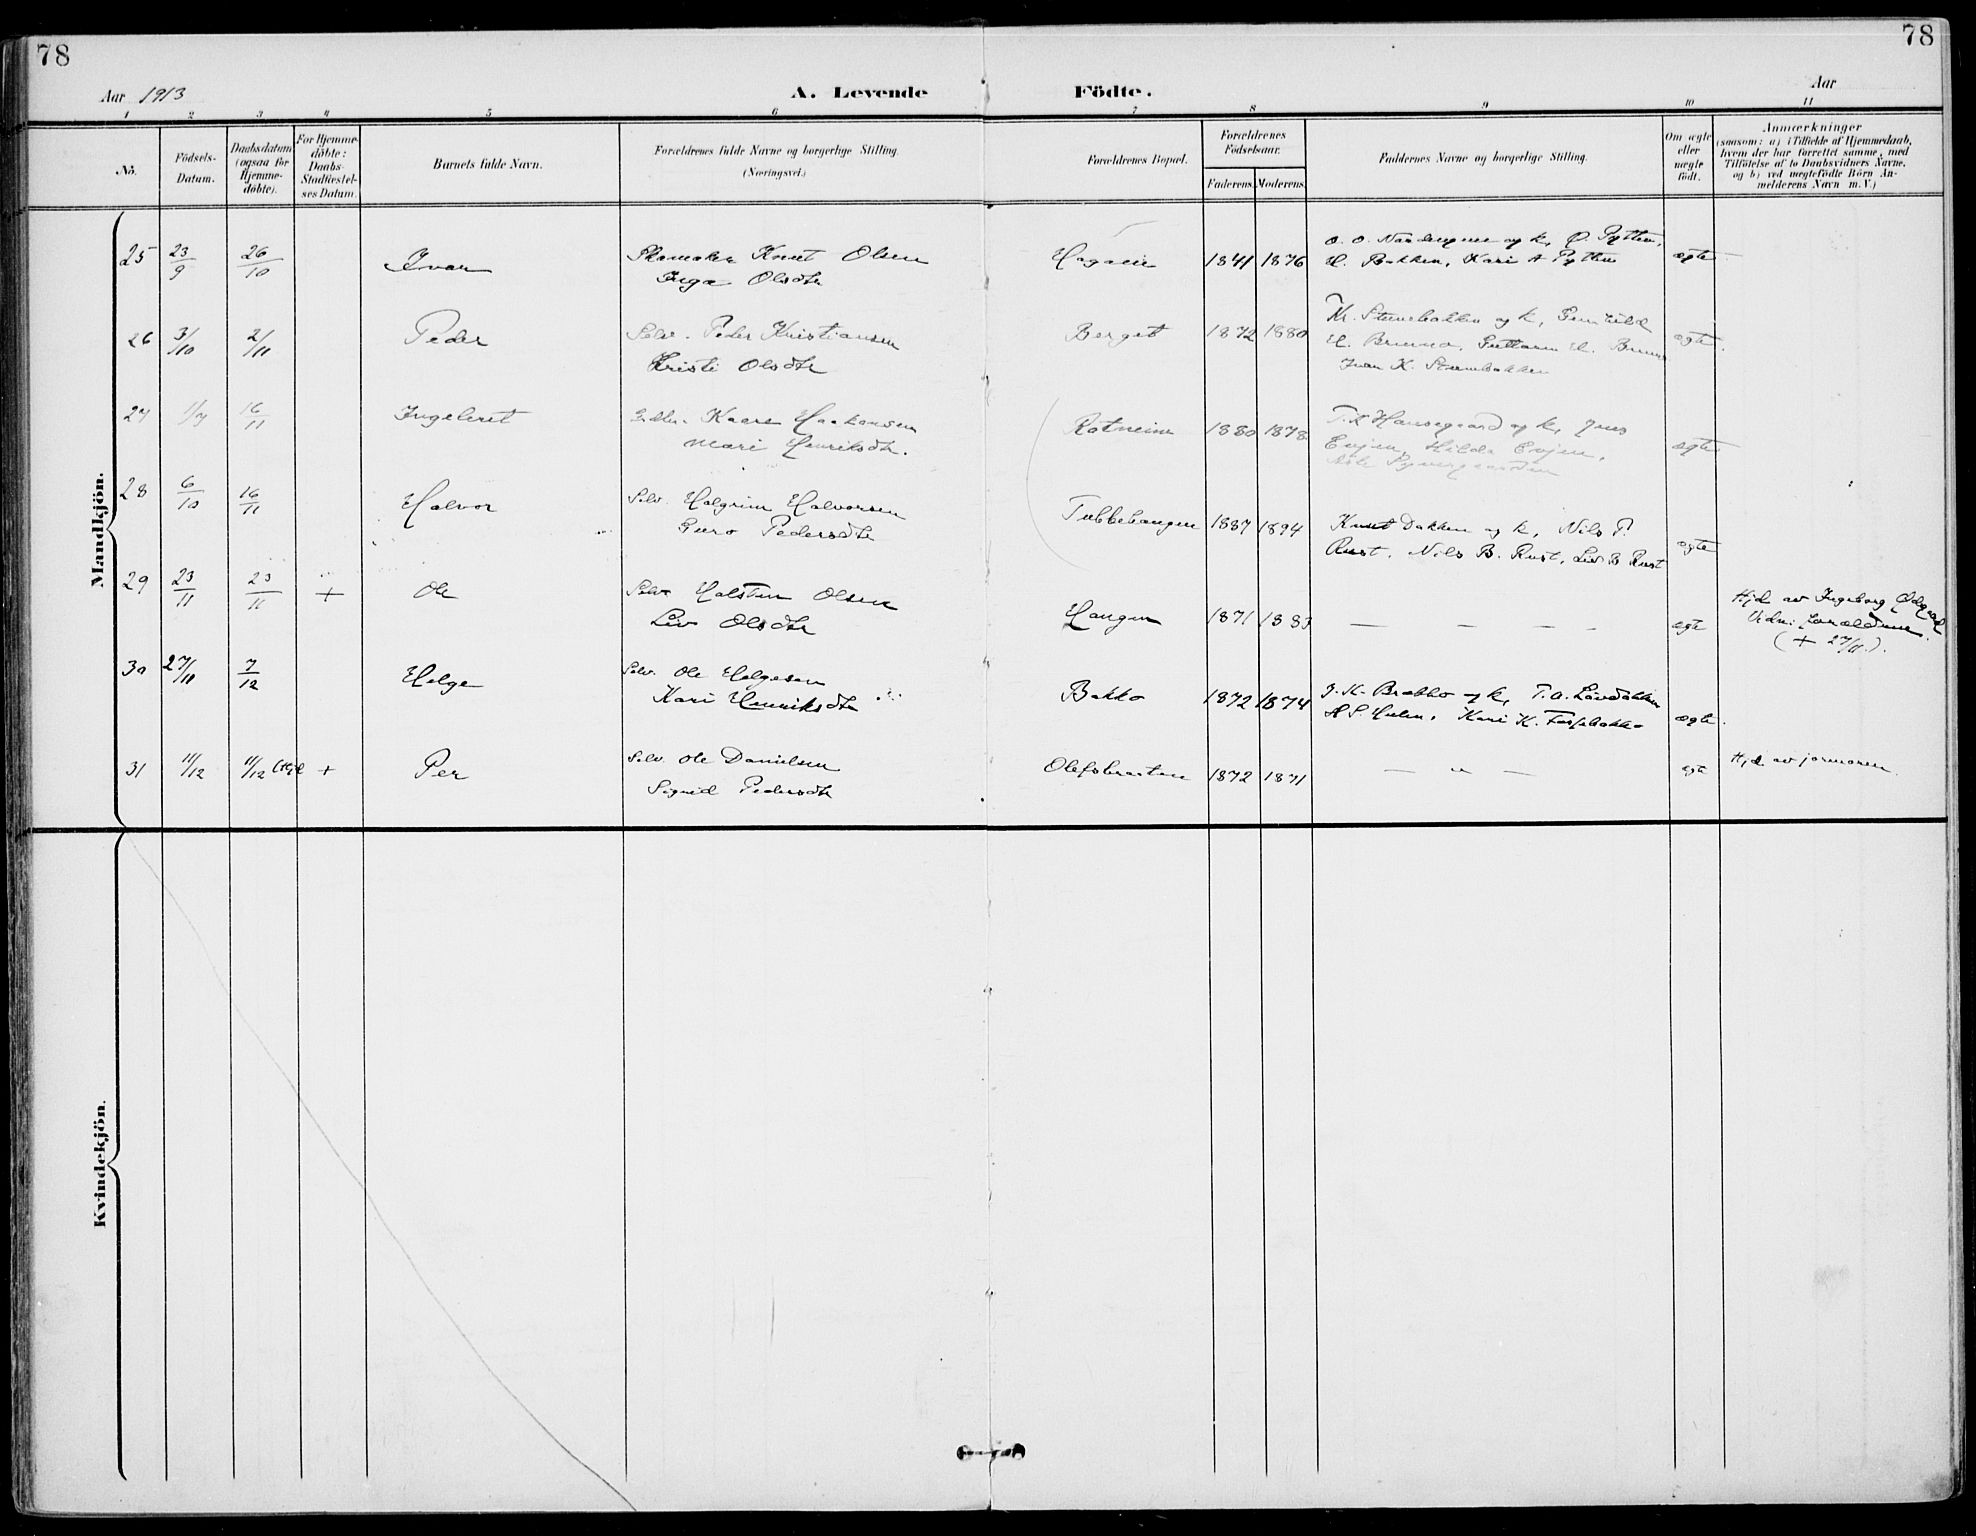 78
78
Aar 1913
A. Levende Födte.
Aar
1 2 3 4 5 6 7 8 9 10 11
No.
Födsels-Datum.
Daabsdatum (ogsaa for Hjemme-döbte).
For Hjemme-döbte: Daabs Stadfæstel-ses Datum.
Barnets fulde Navn.
Forældrenes fulde Navne og borgerlige Stilling. (Næringsvei.)
Forældrenes Bopæl.
Forældrenes Födselsaar.
Faderens. Moderens.
Faddernes Navne og borgerlige Stilling.
Om ægte eller uægte födt.
Anmærkninger
(saasom: a) i Tilfælde af Hjemmedaab,
hvem der har forrettet samme, med
Tilföielse af to Daabsvidners Navne,
og b) ved uægtefödte Börn An-
melderens Navn m. V.)
Mandkjön.
25 23/9 26/10 Ivar Skomaker Knut Olsen Hagalie 1841 1876 O. O. og k, O. Pytten, ægte
Inga Olsdtr H. Bakken, Kari A Pytten
26 3/10 2/11 Peder Selv. Peder Kristiansen Berget 1872 1880 Kr. Steinsbakken og k, Gunhild ægte.
Kristi Olsdtr H. Bruno, Guttorm H. Bruno
Ivar K.
27 16/11 Ingebret Kaare Haakonsen Rotneim 1880 1878 T. K Hansegaard og k, Jens ægte
Mari Henriksdtr. Evjen, Hilda Evjen,
28 6/10 16/11 Halvor Selv. Halgrim Halvorsen Tubbehaugen 1887 1894 Knut Dokken og k, Nils P. ægte
Guro Pedersdtr Rust, Nils B. Rust, Liv B Rust
29 23/11 23/11 + Ole Selv Halsten Olsen Haugen 1871 1883 — — — — ægte Hjd av Ingeborg Ødegaard
Liv Olsdtr Vidn: Forældrene.
(+ 27/11.).
30 27/10 7/12 Helge Selv. Ole Helgesen Bakko 1872 1874 J. K. Brakko og k, T. O. ægte.
Kari Henriksdtr Kari K.
31 11/12 11/12 (Hjd + Per Selv. Ole Danielsen Olefsbraaten 1872 1871 — „ — ægte Hjd av jormoren.
Sigrid Pedersdtr
Kvindekjön.